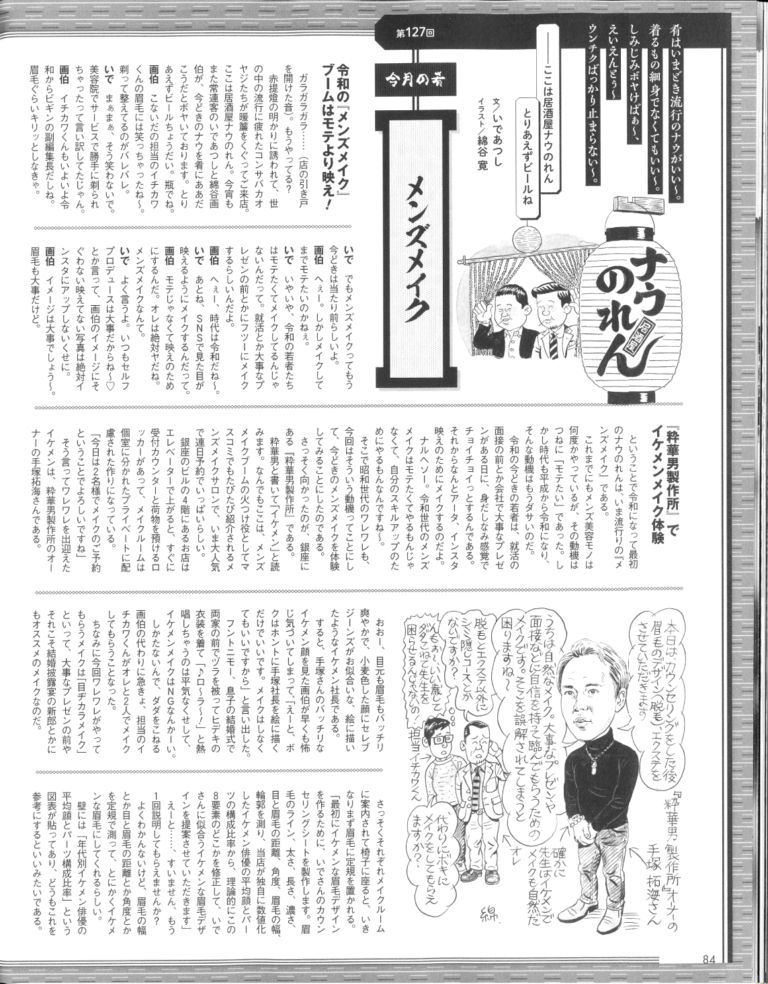 第127回
肴はいまどき流行のナウがいい〜。
着るもの細身でなくてもいい〜。
しみじみボヤけばぁ〜、
えいえんとぅ〜
ウンチクばっかり止まらない〜。
ナウのれん
居酒屋
――ここは居酒屋ナウのれん
とりあえずビールね
文/いであつし
イラスト/綿谷 寛
今月の肴
メンズメイク
令和の『メンズメイク』
ブームはモテより映え!
ガラガラガラ……(店の引き戸
を開けた音)。もうやってる?
赤提燈の明かりに誘われて、世
の中の流行に疲れたコンサバカオ
ヤジたちが暖簾をくぐってご来店。
ここは居酒屋ナウのれん。今宵も
また常連客のいであつしと綿谷画
伯が、今どきのナウを肴にああだ
こうだとボヤいております。とり
あえずビールちょうだい。瓶でね。
画伯 こないだの担当のイチカワ
くんの眉毛には笑っちゃったね〜。
剃って整えてるのがバレバレ。
いで まぁまぁ、そう笑わないで。
美容院でサービスで勝手に剃られ
ちゃったって言い訳してたじゃん。
画伯 イチカワくんもいよいよ令
和からビギンの副編集長だしね。
眉毛ぐらいキリッとしなきゃ。
いで でもメンズメイクってもう
今どきは当たり前らしいよ。
画伯 へぇー。しかしメイクして
までモテたいのかねぇ。
いで いやいや、令和の若者たち
はモテたくてメイクしてるんじゃ
ないんだって。就活とか大事なプ
レゼンの前とかにフツーにメイク
するらしいんだよ。
画伯 へぇー、時代は令和だね〜。
いで あとね、SNSで見た目が
映えるようにメイクするんだって。
画伯 モテじゃなくて映えのため
にするんだ。オレは絶対ヤだね。
メンズメイクなんて。
いで よく言うよ。いつもセルフ
プロデュースは大事だからね〜♡
とか言って、画伯のイメージにそ
ぐわない映えてない写真は絶対イ
ンスタにアップしないくせに。
画伯 イメージは大事でしょう〜。
眉毛も大事だけど。
『粋華男製作所』で
イケメンメイク体験
ということで令和になって最初
のナウのれんは、いま流行りの『メ
ンズメイク』である。
これまでにもメンズ美容モノは
何度かやっているが、その動機は
つねに「モテたい」であった。し
かし時代も平成から令和になり、
そんな動機はもうダサいのだ。
令和の今どきの若者は、就活の
面接の前とか会社で大事なプレゼ
ンがある日に、身だしなみ感覚で
チョイチョイっとするんである。
それからなんとアータ、インスタ
映えのためにメイクするのだよ。
ナルヘソー。令和世代のメンズ
メイクはモテたくてやるもんじゃ
なくて、自分のスキルアップのた
めにやるもんなんですね〜。
そこで昭和世代のワレワレも、
今回はそういう動機ってことにし
て、今どきのメンズメイクを体験
してみることにしたのである。
さっそく向かったのが、銀座に
ある『粋華男製作所』である。
粋華男と書いて「イケメン」と読
みます。なんでもここは、メンズ
メイクブームの火つけ役としてマ
スコミでもたびたび紹介されるメ
ンズメイクサロンで、いま大人気
で連日予約でいっぱいらしい。
銀座のビルの4階にあるお店は
エレベーターで上がると、すぐに
受付カウンターと荷物を預けるロ
ッカーがあって、メイクルームは
個室に分かれたプライベートに配
慮された作りになっている。
「今日は2名様でメイクのご予約
ということでよろしいですね」
そう言ってワレワレを出迎えた
イケメンは、粋華男製作所のオー
ナーの手塚拓海さんである。
おおー、目元も眉毛もバッチリ
爽やかで、小麦色した顔にセレブ
ジーンズがお似合いな、絵に描い
たようなイケメン社長である。
すると、手塚さんのバッチリな
イケメン顔を見た画伯が早くも怖
じ気づいてしまって、「えーと、ボ
クはホントに手塚社長を絵に描く
だけでいいです。メイクはしなく
てもいいですから」と言い出した。
フントニモー、息子の結婚式で
両家の前でヅラを被ってヒデキの
衣装を着て「トロ〜ラ〜!」と熱
唱しちゃうのは平気なくせして、
イケメンメイクはNGなんかーい。
しかたないんで、ダダをこねる
画伯の代わりに急きょ、担当のイ
チカワくんがオレと2人でメイク
してもらうことになった。
ちなみに今回ワレワレがやって
もらうメイクは「目ヂカラメイク」
といって、大事なプレゼンの前や
それこそ結婚披露宴の新郎とかに
もオススメのメイクなのだ。
さっそくそれぞれメイクルーム
に案内されて椅子に座ると、いき
なりまず眉毛に定規を置かれる。
「最初にイケメンな眉毛デザイン
を作るために、いでさんのカウン
セリングシートを製作します。眉
毛のライン、太さ、長さ、濃さ、
目と眉毛の距離、角度、眉毛の幅、
輪郭を測り、当店が独自に数値化
したイケメン俳優の平均顔とパー
ツの構成比率から、理論的にこの
8要素のどこかを修正して、いで
さんに似合うイケメンな眉毛デザ
インを提案させていただきます」
えーと……、すいません、もう
1回説明してもらえませんか?
よくわかんないけど、眉毛の幅
とか目と眉毛の距離とか角度とか
を定規で測って、とにかくイケメ
ンな眉毛にしてくれるらしい。
壁には「年代別イケメン俳優の
平均顔とパーツ構成比率」という
図表が貼ってあり、どうもこれを
参考にするといいみたいである。
本日はカウンセリングをした後
眉毛のデザイン、脱毛、エクステを
させていただきます
『粋華男製作所』オーナーの
手塚拓海さん
うちは自然なメイクで。大事なプレゼンや
面接などに自信を持って臨んでもらうための
メイクです。そこを誤解されてしまうと
困りますね〜
確かに
先生はイケメンで
メイクも自然だ
オレ
脱毛とエクステ以外に
シミ隠しコースとか
ないんですか?
担当イチカワくん
代わりにボキに
メイクをしてもらえ
ますか?
綿
84